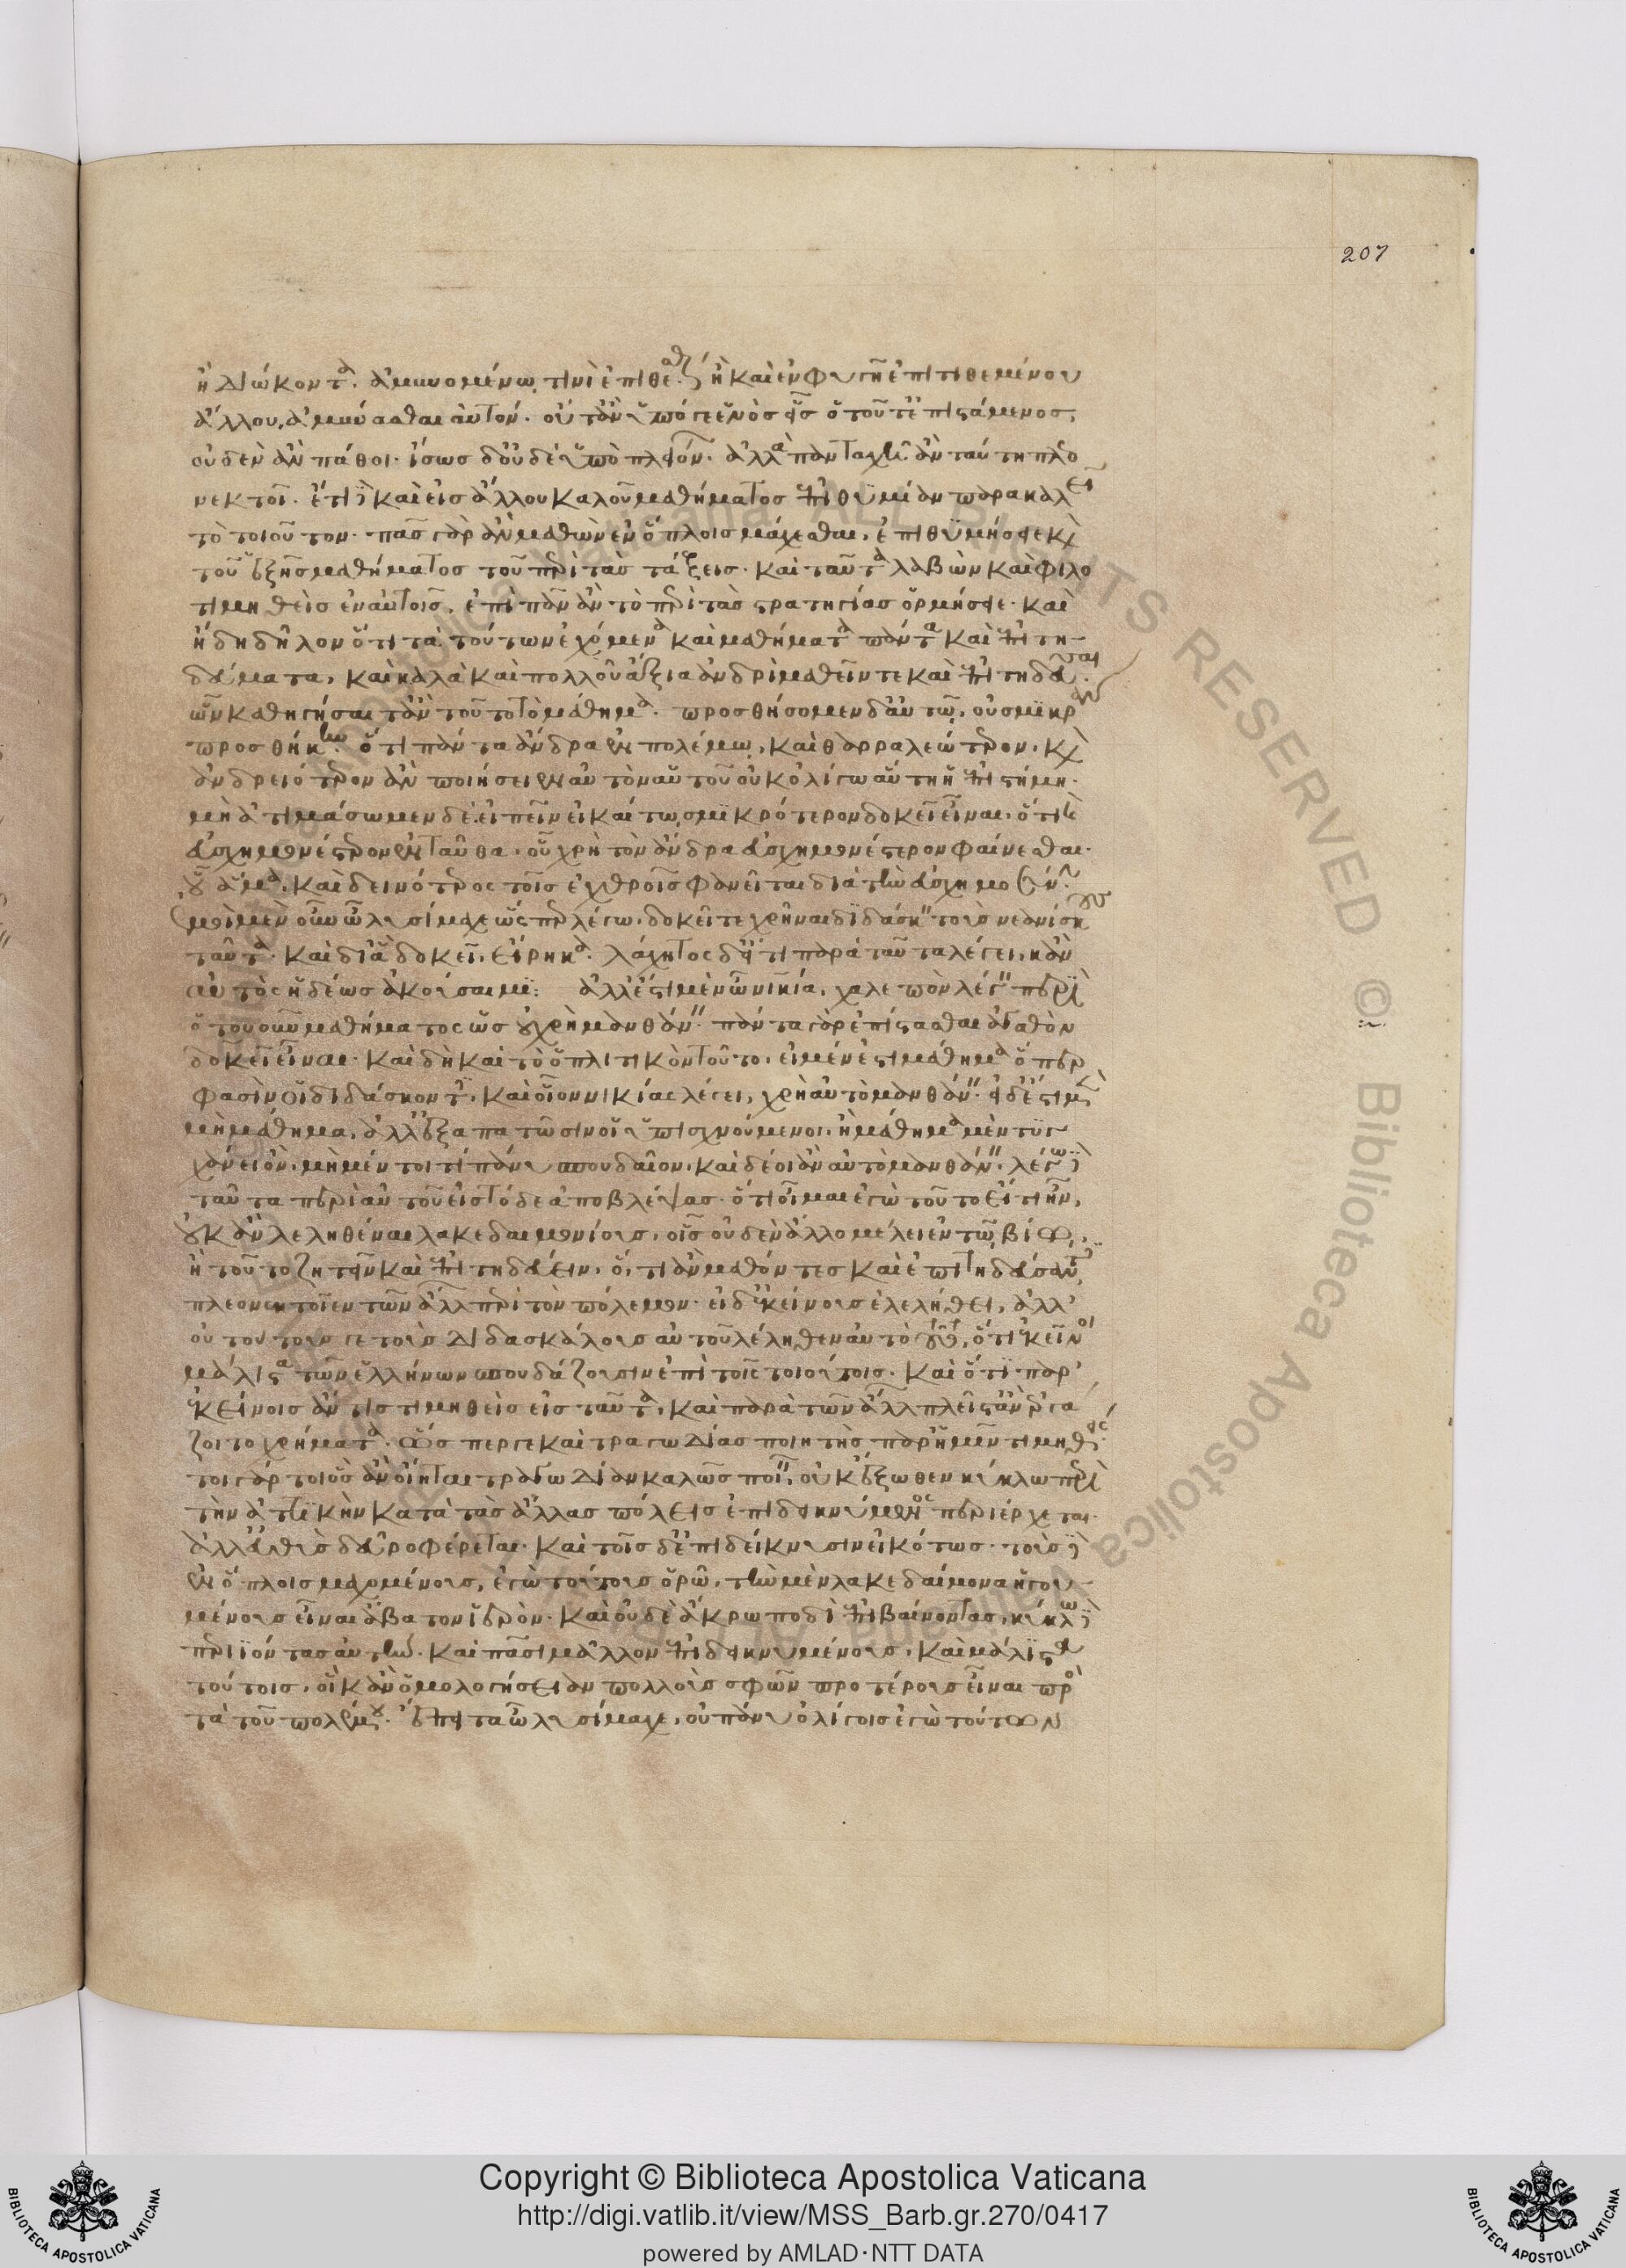 207
ἢ διώκοντα ἀμυνομένω τινὶ ἐπιθέσθαι ἢ καὶ ἐν φυγῆ ἐπιτιθεμένου
ἄλλου, ἀμύνασθαι αὐτόν. οὔτ' ἂν ὑπό γε ἑνὸς εἷς ὁ τοῦτ' ἐπιστάμενος,
οὐδὲν ἂν πάθοι. ἴσως δ' οὐδὲ ὑπὸ πλειόνων. ἀλλὰ πανταχῆ ἂν ταύτη πλεο
νεκτοῖ. ἔτι δὲ καὶ εἰς ἄλλου καλοῦ μαθήματος ἐπιθυμίαν παρακαλεῖ
τὸ τοιοῦτον. πᾶς γὰρ ἂν μαθὼν ἐν ὅπλοις μάχεσθαι, ἐπιθυμήσειε καὶ
τοῦ ἑξῆς μαθήματος τοῦ περὶ τὰς τάξεις. καὶ ταῦτα λαβὼν καὶ φιλο
τιμηθεὶς ἐν αὐτοῖς, ἐπὶ πᾶν ἂν τὸ περὶ τὰς στρατηγίας ὁρμήσειε. καὶ
ἤδη δῆλον ὅτι τὰ τούτων ἐχόμενα καὶ μαθήματα πάντα καὶ ἐπιτη
δεύματα, καὶ καλὰ καὶ πολλοῦ ἄξια ἀνδρὶ μαθεῖν τε καὶ ἐπιτηδεῦσαι.
ὧν καθηγήσαιτ' ἂν τοῦτο τὸ μάθημα. προσθήσομεν δ' αὐτῶ, οὐ σμικρὰν
προσθήκην. ὅτι πάντα ἄνδρα ἐν πολέμω, καὶ θαρραλεώτερον, καὶ
ἀνδρειότερον ἂν ποιήσειεν αὐτὸν αὑτοῦ οὐκ ὀλίγω αὕτη ἡ ἐπιστήμη.
μὴ ἀτιμάσωμεν δὲ εἰπεῖν εἰ καί τω σμικρότερον δοκεῖ εἶναι, ὅτι καὶ
εὐσχημονέστερον ἐνταῦθα. οὗ χρὴ τὸν ἄνδρα εὐσχημονέστερον φαίνεσθαι.
οὗ ἅμα, καὶ δεινότερος τοῖς ἐχθροῖς φανεῖται διὰ τὴν εὐσχημοσύνην.
ἐμοὶ μὲν οὖν ὦ λυσίμαχε ὥσπερ λέγω, δοκεῖ τε χρῆναι διδάσκειν τοὺς νεανίσκους
ταῦτα. καὶ δι' ἃ δοκεῖ, εἴρηκα. λάχητος δ' εἴ τι παρὰ ταῦτα λέγει, κἂν
αὐτὸς ἡδέως ἀκούσαιμι: ἀλλ' ἔστι μὲν ὦ νικία, χαλεπὸν λέγειν περὶ
ὁτουοῦν μαθήματος ὡς οὐ χρὴ μανθάνειν. πάντα γὰρ ἐπίστασθαι ἀγαθὸν
δοκεῖ εἶναι. καὶ δὴ καὶ τὸ ὁπλιτικὸν τοῦτο, εἰ μέν ἐστι μάθημα ὅπερ
φασὶν οἱ διδάσκοντες, καὶ οἷον νικίας λέγει, χρὴ αὐτὸ μανθάνειν. εἰ δ' ἔστι μὲν
μὴ μάθημα, ἀλλ' ἐξαπατῶσιν οἱ ὑπισχνούμενοι, ἢ μάθημα μὲν τυγ
χάνει ὄν, μὴ μέντοι τί πάνυ σπουδαῖον, καὶ δέοι ἂν αὐτὸ μανθάνειν. λέγω δὲ
ταῦτα περὶ αὐτοῦ εἰς τόδε ἀποβλέψας. ὅτι οἶμαι ἐγὼ τοῦτο εἴ τι ἦν,
οὐκ ἂν λεληθέναι λακεδαιμονίους, οἷς οὐδὲν ἄλλο μέλει ἐν τῶ βίω,
ἢ τοῦτο ζητεῖν καὶ ἐπιτηδεύειν, ὅ, τι ἂν μαθόντες καὶ ἐπιτηδεύσαντες
πλεονεκτοῖεν τῶν ἄλλων περὶ τὸν πόλεμον. εἰ δ' ἐκείνους ἐλελήθει, ἀλλ'
οὐ τούτους γε τοὺς διδασκάλους αὐτοῦ λέληθεν αὐτὸ τοῦτο, ὅτι ἐκεῖνοι
μάλιστα τῶν ἑλλήνων σπουδάζουσιν ἐπὶ τοῖς τοιούτοις. καὶ ὅτι παρ'
ἐκείνοις ἄν τις τιμηθεὶς εἰς ταῦτα, καὶ παρὰ τῶν ἄλλων πλεῖστ' ἂν ἐργά
ζοιτο χρήματα. ὥσπερ γε καὶ τραγωδίας ποιητὴς παρ' ἡμῖν τιμηθείς.
τοιγάρτοι ὃς ἂν οἴηται τραγωδίαν καλῶς ποιεῖν, οὐκ ἔξωθεν κύκλω περὶ
τὴν ἀττικὴν κατὰ τὰς ἄλλας πόλεις ἐπιδεικνύμενος περιέρχεται.
ἀλλ' εὐθὺς δεῦρο φέρεται. καὶ τοῖσδ' ἐπιδείκνυσιν εἰκότως. τοὺς δὲ
ἐν ὅπλοις μαχομένους, ἐγὼ τούτους ὁρῶ, τὴν μὲν λακεδαίμονα ἡγου
μένους εἶναι ἄβατον ἱερὸν. καὶ οὐδὲ ἄκρω ποδὶ ἐπιβαίνοντας, κύκλω δὲ
περιιόντας αὐτὴν. καὶ πᾶσι μᾶλλον ἐπιδεικνυμένους, καὶ μάλιστα
τούτοις, οἳ κἂν ὁμολογήσειαν πολλοὺς σφῶν προτέρους εἶναι πρὸς
τὰ τοῦ πολέμου. ἔπειτα ὦ λυσίμαχε, οὐ πάνυ ὀλίγοις ἐγὼ τούτων
Copyright © Biblioteca Apostolica Vaticana
http://digi.vatlib.it/view/MSS_Barb.gr.270/0417
powered by AMLAD·NTT DATA